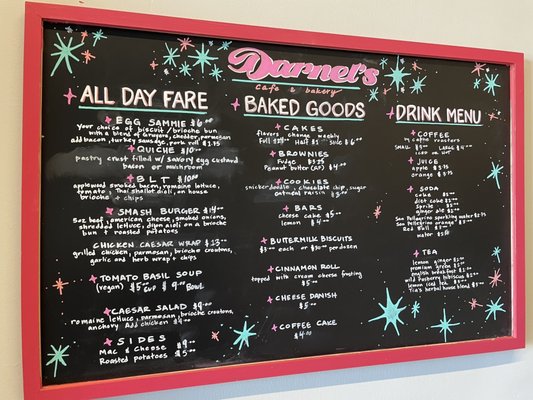 Darnel's
Cafe & bakery
ALL DAY FARE
EGG SAMMIE $6.00
your choice of biscuit / brioche bun
with a blend of Gruyere, cheddar, parmesan
add bacon, turkey sausage, pork roll $1.75
QUICHE $10.00
pastry crust filled w/ savory egg custard
bacon or mushroom
BLT $10.00
applewood smoked bacon, romaine lettuce,
tomato, Thai shallot aioli, on house
brioche + chips
SMASH BURGER $14.00
5oz beef, american cheese, smoked onions,
shredded lettuce, dijon aioli on a brioche
bun + roasted potatoes
CHICKEN CAESAR WRAP $13.00
grilled chicken, parmesan, brioche croutons,
garlic and herb wrap + chips
TOMATO BASIL SOUP
(vegan) $5.00 Cup $9.00 Bowl
CAESAR SALAD $9.00
romaine lettuce, parmesan, brioche croutons,
anchovy Add chicken $4.00
SIDES
Mac & Cheese $9.00
Roasted potatoes $5.00
BAKED GOODS
CAKES
flavors change weekly
Full Half Slice $6.00
BROWNIES
Fudge
Peanut butter (GF) $4.00
COOKIES
snickerdoodle, chocolate chip, sugar
oatmeal raisin
BARS
cheese cake $5.00
lemon $4.00
BUTTERMILK BISCUITS
$3.00 each or per dozen
CINNAMON ROLL
topped with cream cheese frosting
$5.00
CHEESE DANISH
$5.00
COFFEE CAKE
$4.00
DRINK MENU
COFFEE
roasters
SMALL LARGE
iced or hot
JUICE
apple
orange
SODA
coke
diet coke
Sprite
ginger ale
San Pellegrino sparkling water
San Pellegrino orange
Red Bull
water
TEA
lemon ginger
premium green
english breakfast
wild raspberry hibiscus
Lemon iced tea
Tia's herbal house blend